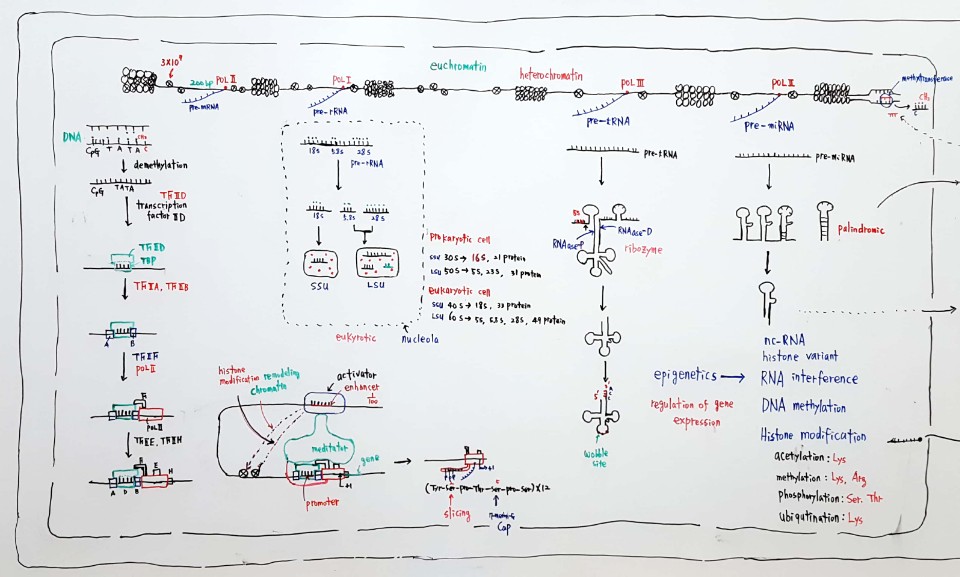 3X10⁹
200bp
POL II
pre-mRNA
POL I
pre-rRNA
euchromatin
heterochromatin
POL III
pre-tRNA
POL II
pre-miRNA
methyltransferase
CH₃
C
DNA
CH₃
CpG T A T A C
demethylation
CpG TATA
TFIID
transcription
factor IID
TFIID
TBP
TFIIA, TFIIB
A B
TFIIF
POL II
F
POL II
TFIIE, TFIIH
A D B
E
H
18S 5.8S 28S
pre-rRNA
18S 5.8S 28S
SSU LSU
eukyrotic
nucleola
Prokaryotic cell
SSU 30S → 16S, 21 protein
LSU 50S → 5S, 23S, 31 protein
Eukaryotic cell
SSU 40S → 18S, 33 protein
LSU 60S → 5S, 5.8S, 28S, 49 protein
histone
modification
remodeling
chromatin
activator
enhancer
1/100
meditator
gene
promoter
H
(Tyr-Ser-pro-Thr-Ser-pro-Ser)X12
slicing
Cap
pre-tRNA
RNAase-P
RNAase-D
ribozyme
wobble
site
pre-miRNA
palindromic
nc-RNA
histone variant
epigenetics → RNA interference
regulation of gene
expression
DNA methylation
Histone modification
acetylation: Lys
methylation: Lys, Arg
phosphorylation: Ser. Thr
ubiqutination: Lys